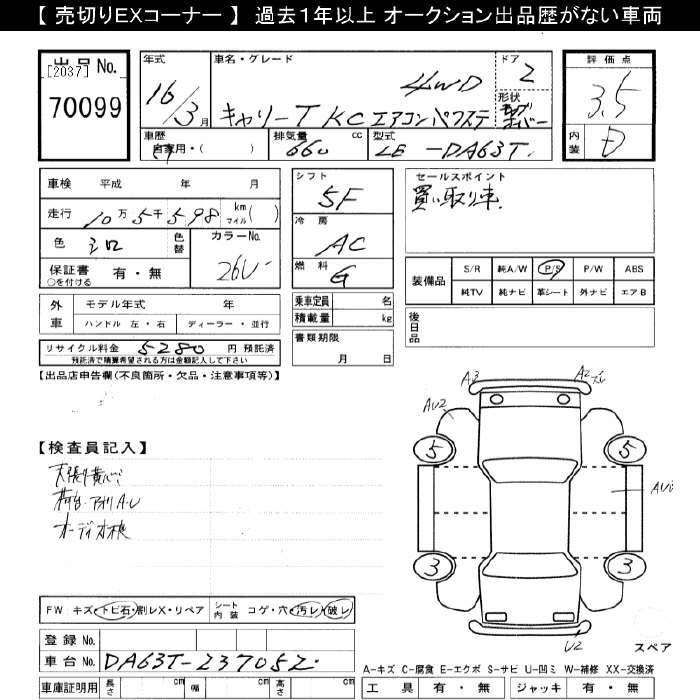 【 売切りEXコーナー 】 過去１年以上 オークション出品歴がない車両
出品 No.
[2037]
70099
年式
16/3月
車名・グレード
4WD
キャリーT KC エアコンパワステ
ドア
2
形状
評価点
3.5
内装
D
車歴
自家用・( )
排気量 cc
660
型式
LE-DA63T
車検 平成 年 月
走行 10万5千598 km マイル( )
色 シロ 色替
カラーNo.
26U
保証書 有・無
○を付ける
シフト
5F
冷房
AC
燃料
G
セールスポイント
買い取り車
装備品 S/R 純A/W P/S P/W ABS
純TV 純ナビ 革シート 外ナビ エアB
外車 モデル年式 年
ハンドル 左・右 ディーラー・並行
乗車定員 名
積載量 kg
後日品
リサイクル料金 5280 円 預託済
預託済で精算希望される方は金額記入して下さい
書類期限
月 日
【出品店申告欄(不良箇所・欠品・注意事項等)】
A3
A2
AU2
5
5
【検査員記入】
荷台 アオリ A・U
3
3
U2
FW キズ・トビ石・割レX・リペア シート内装 コゲ・穴・汚レ・破レ
登録 No.
車台 No. DA63T-237052
スペア
A-キズ C-腐食 E-エクボ S-サビ U-凹ミ W-補修 XX-交換済
車庫証明用 長さ cm 幅 cm 高さ cm
工具 有・無 ジャッキ 有・無